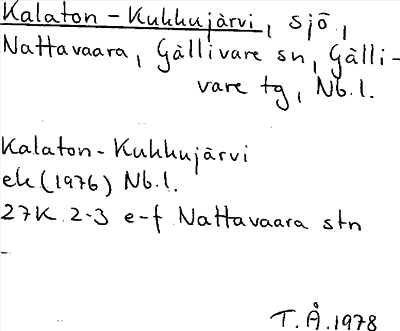 Kalaton-Kukkujärvi, sjö,
Nattavaara, Gällivare sn, Gälli-
vare tg, Nb.l.
Kalaton-Kukkujärvi
ek (1976) Nb.l.
27K 2-3 e-f Nattavaara stn
-
T.Å.1978